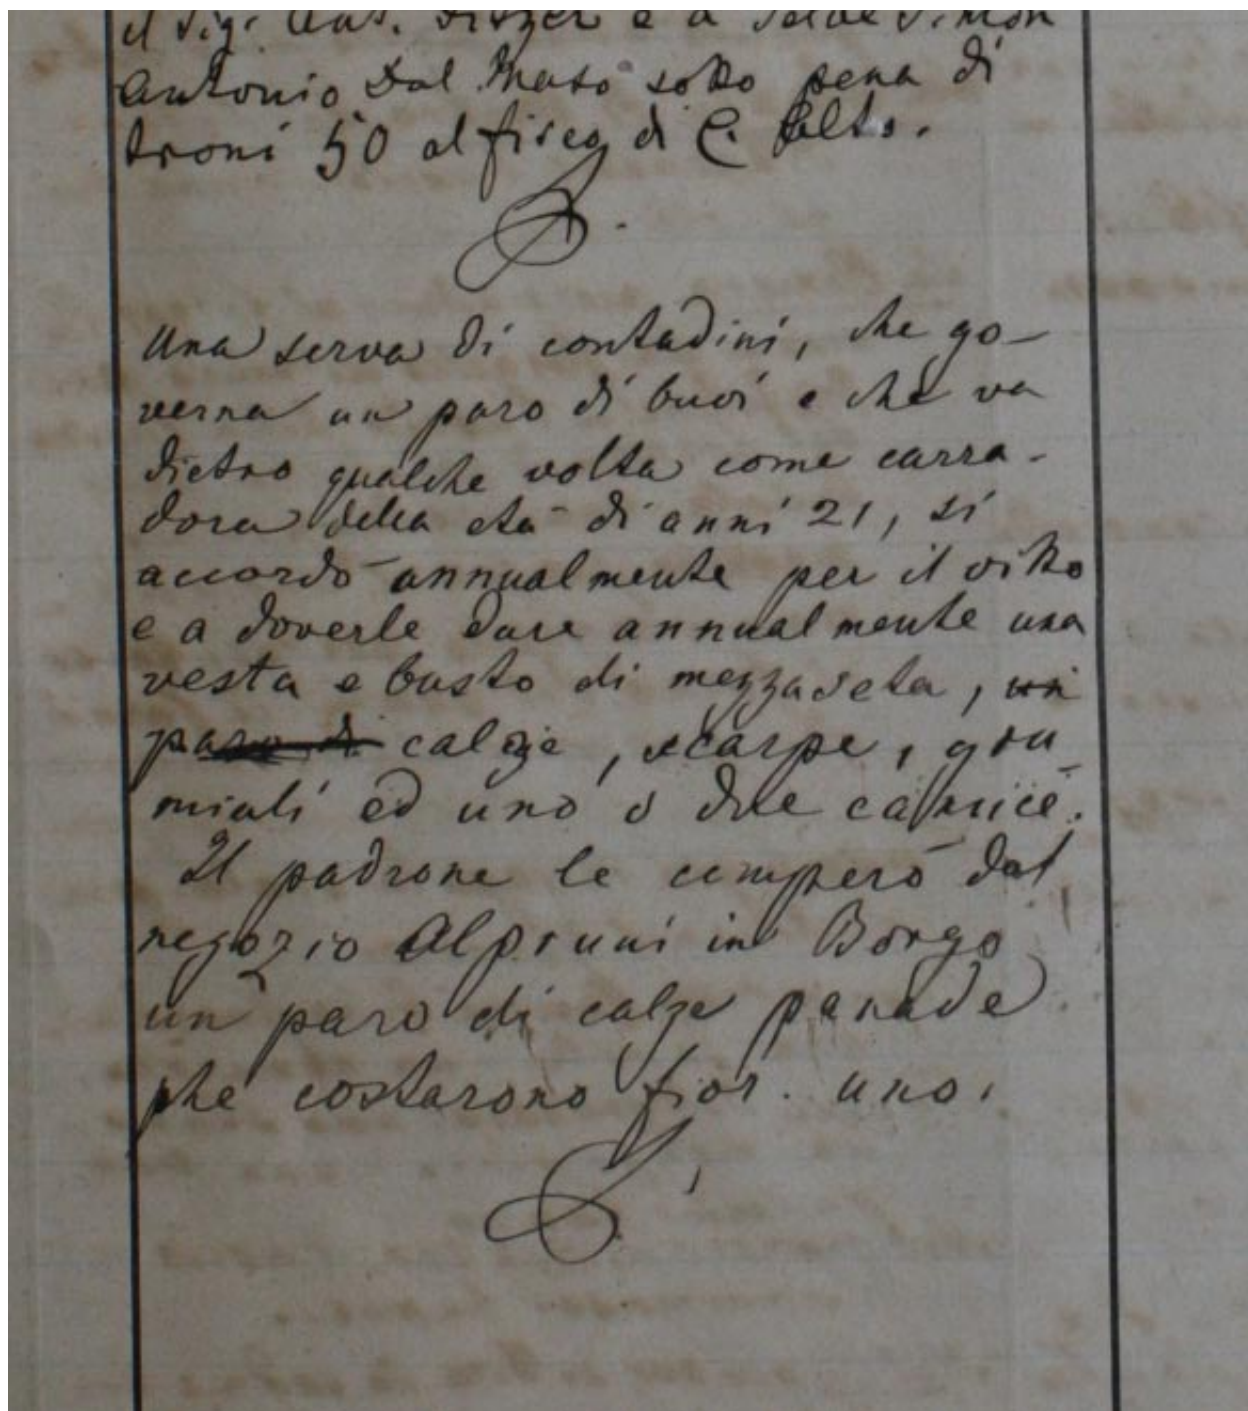 il Sig. Ant. e a
Antonio Dal Maso sotto pena di
troni 50 al fisco di C. alto.
Una serva di contadini, che go-
verna un paro di buoi e che va
dietro qualche volta come carra-
dora della età di anni 21, si
accordò annualmente per il vitto
e a doverle dare annualmente una
vesta e busto di mezzaseta, un
paro di calze, scarpe, gru
miali ed uno o due camice.
Il padrone le comperò dal
negozio Alpruni in Borgo
un paro di calze panade
che costarono fior. uno.